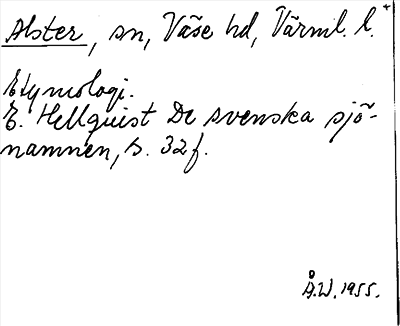 Alster, sn, Väse hd, Värml. l.+
Etymologi.
E. Hellquist De svenska sjö-
namnen, s. 32 f.
Å.W. 1955.